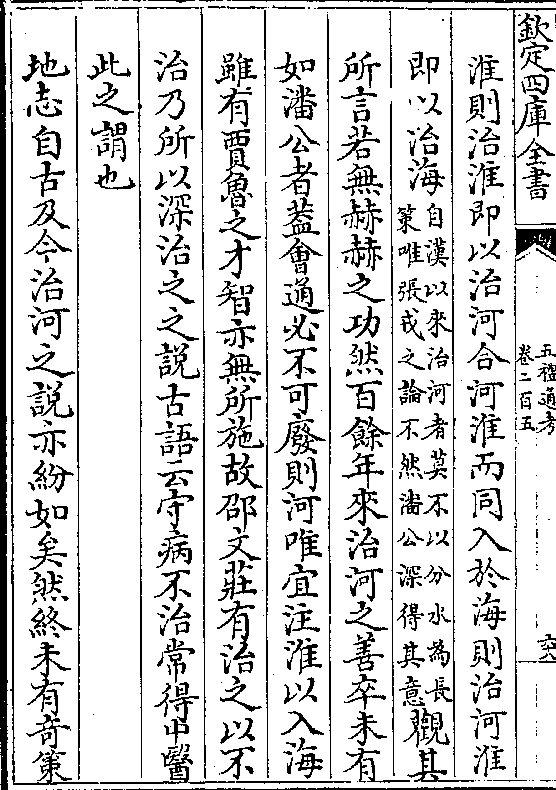 欽定四庫全書
五禮通考
卷二百五
六
淮則治淮即以治河合河淮而同入於海則治河淮
即以治海自漢以來治河者莫不以分水為長
策唯張戎之論不然潘公深得其意觀其
所言若無赫赫之功然百餘年來治河之善卒未有
如潘公者蓋會通必不可廢則河唯宜注淮以入海
雖有賈魯之才智亦無所施故邵文莊有治之以不
治乃所以深治之之說古語云守病不治常得中醫
此之謂也
地志自古及今治河之說亦紛如矣然終未有奇策